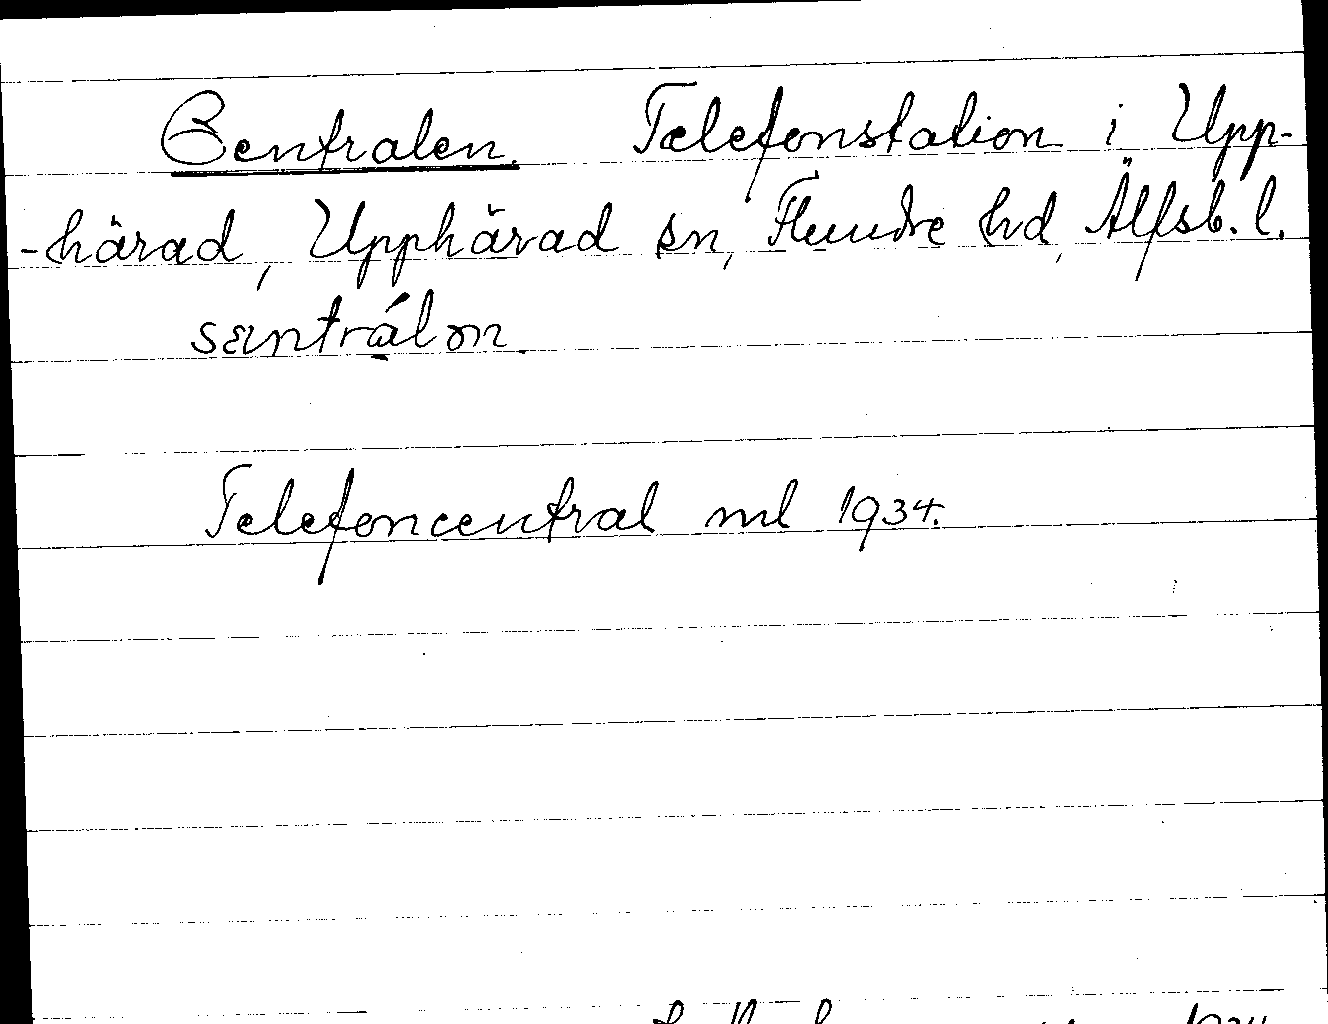 Centralen. Telefonstation i Upp-
-härad, Upphärad sn, Flundre hd, Älfsb. l.
sæntrálọn.
Telefoncentral ml 1934.
1934